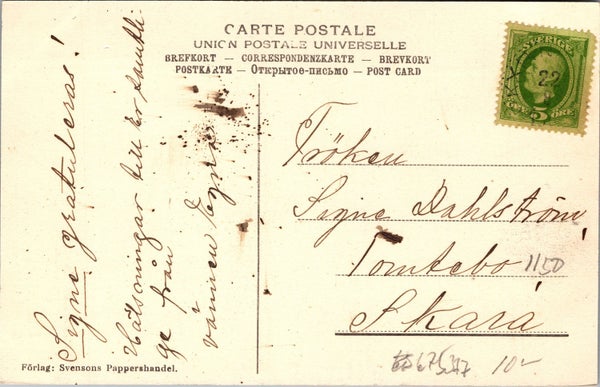 CARTE POSTALE
UNION POSTALE UNIVERSELLE
BREFKORT — CORRESPONDENZKARTE — BREVKORT
POSTKARTE — Открытое-письмо — POST CARD
SVERIGE
22
5
ÖRE
Signe gratuleras!
Hälsningar till Er samtli
ge från
vännen Agnes
Fröken
Signe Dahlström,
Tomtebo
1150
Skara
10-
Förlag: Svensons Pappershandel.